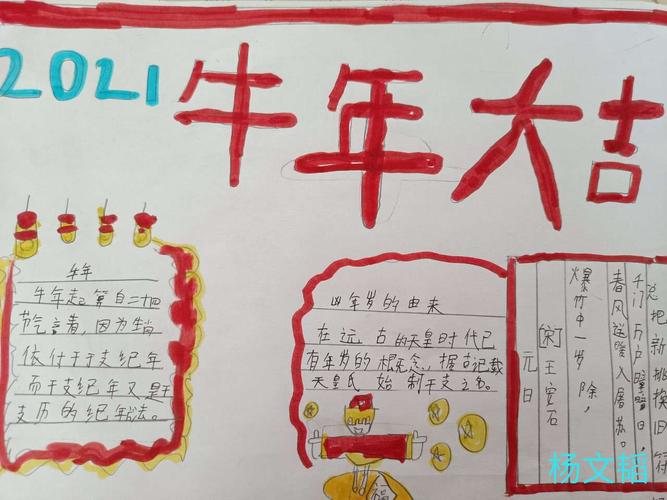 2021 牛年大吉
牛年
牛年起算自二十四
节气立春,因为生肖
依付于干支纪年
而干支纪年又是干
支历的纪年法。
年岁的由来
在远古的天皇时代已
有年岁的概念,据古记载
天皇氏始制干支之名。
元日
[宋]王安石
爆竹中一岁除,
春风送暖入屠苏。
千门万户曈曈日,
总把新桃换旧符
福
杨文韬